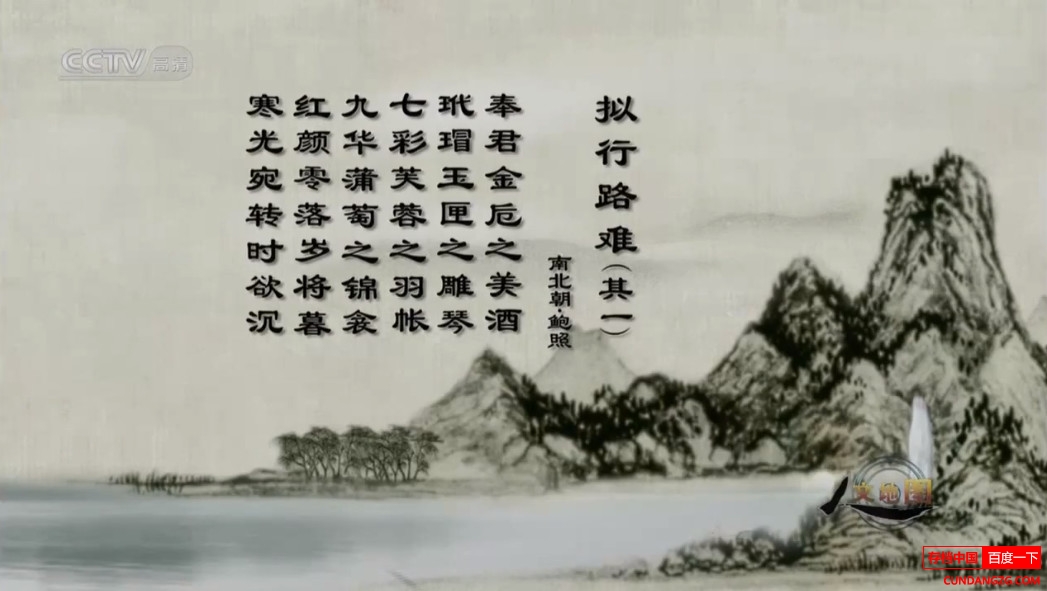 CCTV 高清
拟行路难（其一）
南北朝·鲍照
奉君金卮之美酒
玳瑁玉匣之雕琴
七彩芙蓉之羽帐
九华蒲萄之锦衾
红颜零落岁将暮
寒光宛转时欲沉
人文地图
存档中国 百度一下
CUNDANGZG.COM